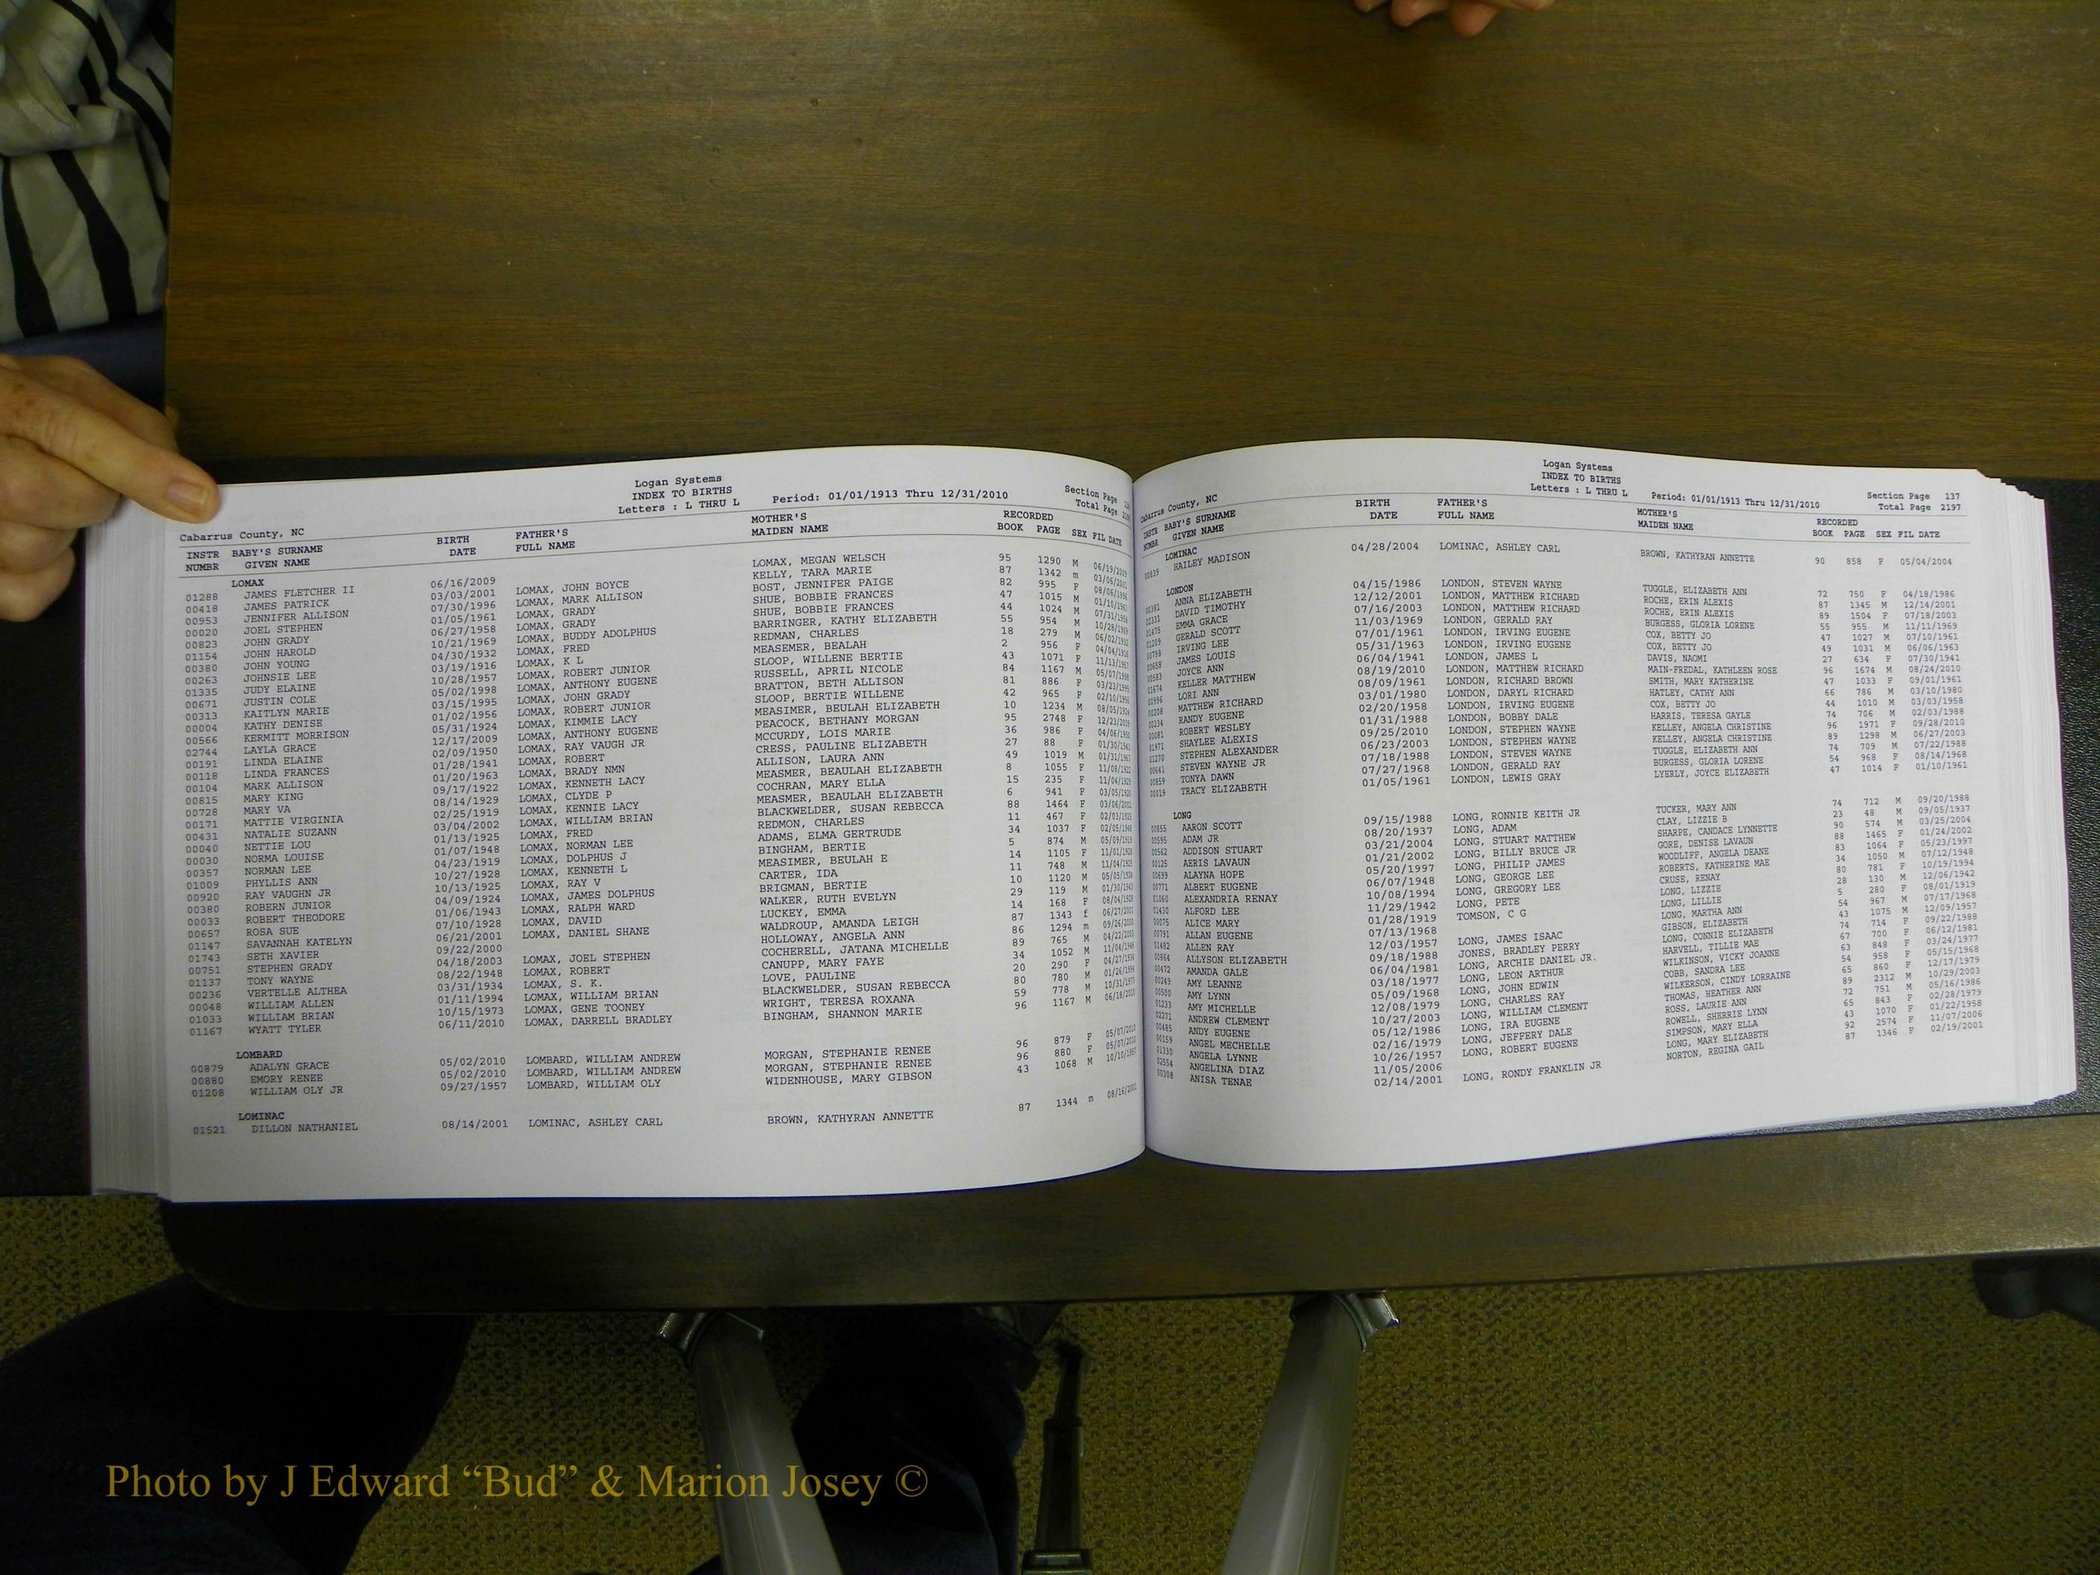 Logan Systems
INDEX TO BIRTHS
Letters : L THRU L Period: 01/01/1913 Thru 12/31/2010 Section Page
Cabarrus County, NC Total Page
INSTR BABY'S SURNAME BIRTH FATHER'S MOTHER'S RECORDED
NUMBR GIVEN NAME DATE FULL NAME MAIDEN NAME BOOK PAGE SEX FIL DATE
LOMAX
01288 JAMES FLETCHER II 06/16/2009 LOMAX, MEGAN WELSCH 95 1290 M 06/19/2009
00418 JAMES PATRICK 03/03/2001 LOMAX, JOHN BOYCE KELLY, TARA MARIE 87 1342 m 03/06/2001
00953 JENNIFER ALLISON 07/30/1996 LOMAX, MARK ALLISON BOST, JENNIFER PAIGE 82 995 F 08/06/1996
00020 JOEL STEPHEN 01/05/1961 LOMAX, GRADY SHUE, BOBBIE FRANCES 47 1015 M 01/10/1961
00823 JOHN GRADY 06/27/1958 LOMAX, GRADY SHUE, BOBBIE FRANCES 44 1024 M 07/31/1958
01154 JOHN HAROLD 10/21/1969 LOMAX, BUDDY ADOLPHUS BARRINGER, KATHY ELIZABETH 55 954 M 10/28/1969
00380 JOHN YOUNG 04/30/1932 LOMAX, FRED REDMAN, CHARLES 18 279 M 06/02/1932
00263 JOHNSIE LEE 03/19/1916 LOMAX, K L MEASEMER, BEALAH 2 956 F 04/04/1916
01335 JUDY ELAINE 10/28/1957 LOMAX, ROBERT JUNIOR SLOOP, WILLENE BERTIE 43 1071 F 11/13/1957
00671 JUSTIN COLE 05/02/1998 LOMAX, ANTHONY EUGENE RUSSELL, APRIL NICOLE 84 1167 M 05/07/1998
00313 KAITLYN MARIE 03/15/1995 LOMAX, JOHN GRADY BRATTON, BETH ALLISON 81 886 F 03/23/1995
00004 KATHY DENISE 01/02/1956 LOMAX, ROBERT JUNIOR SLOOP, BERTIE WILLENE 42 965 F 02/10/1956
00566 KERMITT MORRISON 05/31/1924 LOMAX, KIMMIE LACY MEASIMER, BEULAH ELIZABETH 10 1234 M 08/05/1924
02744 LAYLA GRACE 12/17/2009 LOMAX, ANTHONY EUGENE PEACOCK, BETHANY MORGAN 95 2748 F 12/23/2009
00191 LINDA ELAINE 02/09/1950 LOMAX, RAY VAUGH JR MCCURDY, LOIS MARIE 36 986 F 04/06/1950
00118 LINDA FRANCES 01/28/1941 LOMAX, ROBERT CRESS, PAULINE ELIZABETH 27 88 F 01/30/1941
00104 MARK ALLISON 01/20/1963 LOMAX, BRADY NMN ALLISON, LAURA ANN 49 1019 M 01/31/1963
00815 MARY KING 09/17/1922 LOMAX, KENNETH LACY MEASMER, BEAULAH ELIZABETH 8 1055 F 11/08/1922
00728 MARY VA 08/14/1929 LOMAX, CLYDE P COCHRAN, MARY ELLA 15 235 F 11/04/1929
00171 MATTIE VIRGINIA 02/25/1919 LOMAX, KENNIE LACY MEASMER, BEULAH ELIZABETH 6 941 F
00431 NATALIE SUZANN 03/04/2002 LOMAX, WILLIAM BRIAN BLACKWELDER, SUSAN REBECCA 88 1464 F 03/06/2002
00040 NETTIE LOU 01/13/1925 LOMAX, FRED REDMON, CHARLES 11 467 F 02/03/1925
00030 NORMA LOUISE 01/07/1948 LOMAX, NORMAN LEE ADAMS, ELMA GERTRUDE 34 1037 F 02/05/1948
00357 NORMAN LEE 04/23/1919 LOMAX, DOLPHUS J BINGHAM, BERTIE 5 874 M 05/09/1919
01009 PHYLLIS ANN 10/27/1928 LOMAX, KENNETH L MEASIMER, BEULAH E 14 1105 F 11/01/1928
00920 RAY VAUGHN JR 10/13/1925 LOMAX, RAY V CARTER, IDA 11 748 M 11/04/1925
00380 ROBERN JUNIOR 04/09/1924 LOMAX, JAMES DOLPHUS BRIGMAN, BERTIE 10 1120 M 05/05/1924
00033 ROBERT THEODORE 01/06/1943 LOMAX, RALPH WARD WALKER, RUTH EVELYN 29 119 M 01/30/1943
00657 ROSA SUE 07/10/1928 LOMAX, DAVID LUCKEY, EMMA 14 168 F 08/04/1928
01147 SAVANNAH KATELYN 06/21/2001 LOMAX, DANIEL SHANE WALDROUP, AMANDA LEIGH 87 1343 f 06/27/2001
01743 SETH XAVIER 09/22/2000 HOLLOWAY, ANGELA ANN 86 1294 m 09/26/2000
00751 STEPHEN GRADY 04/18/2003 LOMAX, JOEL STEPHEN COCHERELL, JATANA MICHELLE 89 765 M 04/22/2003
01137 TONY WAYNE 08/22/1948 LOMAX, ROBERT CANUPP, MARY FAYE 34 1052 M 11/04/1948
00236 VERTELLE ALTHEA 03/31/1934 LOMAX, S. K. LOVE, PAULINE 20 290 F 04/27/1934
00048 WILLIAM ALLEN 01/11/1994 LOMAX, WILLIAM BRIAN BLACKWELDER, SUSAN REBECCA 80 780 M 01/26/1994
01033 WILLIAM BRIAN 10/15/1973 LOMAX, GENE TOONEY WRIGHT, TERESA ROXANA 59 778 M 10/31/1973
01167 WYATT TYLER 06/11/2010 LOMAX, DARRELL BRADLEY BINGHAM, SHANNON MARIE 96 1167 M 06/18/2010
LOMBARD
00879 ADALYN GRACE 05/02/2010 LOMBARD, WILLIAM ANDREW MORGAN, STEPHANIE RENEE 96 879 F 05/07/2010
00880 EMORY RENEE 05/02/2010 LOMBARD, WILLIAM ANDREW MORGAN, STEPHANIE RENEE 96 880 F 05/07/2010
01208 WILLIAM OLY JR 09/27/1957 LOMBARD, WILLIAM OLY WIDENHOUSE, MARY GIBSON 43 1068 M 10/10/1957
LOMINAC
01521 DILLON NATHANIEL 08/14/2001 LOMINAC, ASHLEY CARL BROWN, KATHYRAN ANNETTE 87 1344 m 08/16/2001
Logan Systems
INDEX TO BIRTHS
Letters : L THRU L Period: 01/01/1913 Thru 12/31/2010 Section Page 137
Cabarrus County, NC Total Page 2197
INSTR BABY'S SURNAME BIRTH FATHER'S MOTHER'S RECORDED
NUMBR GIVEN NAME DATE FULL NAME MAIDEN NAME BOOK PAGE SEX FIL DATE
LOMINAC
00839 HAILEY MADISON 04/28/2004 LOMINAC, ASHLEY CARL BROWN, KATHYRAN ANNETTE 90 858 F 05/04/2004
LONDON
00381 ANNA ELIZABETH 04/15/1986 LONDON, STEVEN WAYNE TUGGLE, ELIZABETH ANN 72 750 F 04/18/1986
02331 DAVID TIMOTHY 12/12/2001 LONDON, MATTHEW RICHARD ROCHE, ERIN ALEXIS 87 1345 M 12/14/2001
01475 EMMA GRACE 07/16/2003 LONDON, MATTHEW RICHARD ROCHE, ERIN ALEXIS 89 1504 F 07/18/2003
01209 GERALD SCOTT 11/03/1969 LONDON, GERALD RAY BURGESS, GLORIA LORENE 55 955 M 11/11/1969
00798 IRVING LEE 07/01/1961 LONDON, IRVING EUGENE COX, BETTY JO 47 1027 M 07/10/1961
00658 JAMES LOUIS 05/31/1963 LONDON, IRVING EUGENE COX, BETTY JO 49 1031 M 06/06/1963
00583 JOYCE ANN 06/04/1941 LONDON, JAMES L DAVIS, NAOMI 27 634 F 07/30/1941
01674 KELLER MATTHEW 08/19/2010 LONDON, MATTHEW RICHARD MAIN-FREDAL, KATHLEEN ROSE 96 1674 M 08/24/2010
00996 LORI ANN 08/09/1961 LONDON, RICHARD BROWN SMITH, MARY KATHERINE 47 1033 F 09/01/1961
00208 MATTHEW RICHARD 03/01/1980 LONDON, DARYL RICHARD HATLEY, CATHY ANN 66 786 M 03/10/1980
00234 RANDY EUGENE 02/20/1958 LONDON, IRVING EUGENE COX, BETTY JO 44 1010 M 03/03/1958
00081 ROBERT WESLEY 01/31/1988 LONDON, BOBBY DALE HARRIS, TERESA GAYLE 74 706 M 02/03/1988
01971 SHAYLEE ALEXIS 09/25/2010 LONDON, STEPHEN WAYNE KELLEY, ANGELA CHRISTINE 96 1971 F 09/28/2010
01270 STEPHEN ALEXANDER 06/23/2003 LONDON, STEPHEN WAYNE KELLEY, ANGELA CHRISTINE 89 1298 M 06/27/2003
00661 STEVEN WAYNE JR 07/18/1988 LONDON, STEVEN WAYNE TUGGLE, ELIZABETH ANN 74 709 M 07/22/1988
00859 TONYA DAWN 07/27/1968 LONDON, GERALD RAY BURGESS, GLORIA LORENE 54 968 F 08/14/1968
00019 TRACY ELIZABETH 01/05/1961 LONDON, LEWIS GRAY LYERLY, JOYCE ELIZABETH 47 1014 F 01/10/1961
LONG
00855 AARON SCOTT 09/15/1988 LONG, RONNIE KEITH JR TUCKER, MARY ANN 74 712 M 09/20/1988
00595 ADAM JR 08/20/1937 LONG, ADAM CLAY, LIZZIE B 23 48 M 09/05/1937
00562 ADDISON STUART 03/21/2004 LONG, STUART MATTHEW SHARPE, CANDACE LYNNETTE 90 574 M 03/25/2004
00125 AERIS LAVAUN 01/21/2002 LONG, BILLY BRUCE JR GORE, DENISE LAVAUN 88 1465 F 01/24/2002
00699 ALAYNA HOPE 05/20/1997 LONG, PHILIP JAMES WOODLIFF, ANGELA DEANE 83 1064 F 05/23/1997
00771 ALBERT EUGENE 06/07/1948 LONG, GEORGE LEE ROBERTS, KATHERINE MAE 34 1050 M 07/12/1948
01060 ALEXANDRIA RENAY 10/08/1994 LONG, GREGORY LEE CRUSE, RENAY 80 781 F 10/19/1994
01430 ALFORD LEE 11/29/1942 LONG, PETE LONG, LIZZIE 28 130 M 12/06/1942
00075 ALICE MARY 01/28/1919 TOMSON, C G LONG, LILLIE 5 280 F 08/01/1919
00791 ALLAN EUGENE 07/13/1968 LONG, MARTHA ANN 54 967 M 07/17/1968
01482 ALLEN RAY 12/03/1957 LONG, JAMES ISAAC GIBSON, ELIZABETH 43 1075 M 12/09/1957
00864 ALLYSON ELIZABETH 09/18/1988 JONES, BRADLEY PERRY LONG, CONNIE ELIZABETH 74 714 F 09/22/1988
00472 AMANDA GALE 06/04/1981 LONG, ARCHIE DANIEL JR. HARVELL, TILLIE MAE 67 700 F 06/12/1981
00249 AMY LEANNE 03/18/1977 LONG, LEON ARTHUR WILKINSON, VICKY JOANNE 63 848 F 03/24/1977
00500 AMY LYNN 05/09/1968 LONG, JOHN EDWIN COBB, SANDRA LEE 54 958 F 05/15/1968
01233 AMY MICHELLE 12/08/1979 LONG, CHARLES RAY WILKERSON, CINDY LORRAINE 65 860 F 12/17/1979
02271 ANDREW CLEMENT 10/27/2003 LONG, WILLIAM CLEMENT THOMAS, HEATHER ANN 89 2312 M 10/29/2003
00485 ANDY EUGENE 05/12/1986 LONG, IRA EUGENE ROSS, LAURIE ANN 72 751 M 05/16/1986
00159 ANGEL MECHELLE 02/16/1979 LONG, JEFFERY DALE ROWELL, SHERRIE LYNN 65 843 F 02/28/1979
01330 ANGELA LYNNE 10/26/1957 LONG, ROBERT EUGENE SIMPSON, MARY ELLA 43 1070 F 01/22/1958
02554 ANGELINA DIAZ 11/05/2006 LONG, MARY ELIZABETH 92 2574 F 11/07/2006
00308 ANISA TENAE 02/14/2001 LONG, RONDY FRANKLIN JR NORTON, REGINA GAIL 87 1346 F 02/19/2001
Photo by J Edward “Bud” & Marion Josey ©